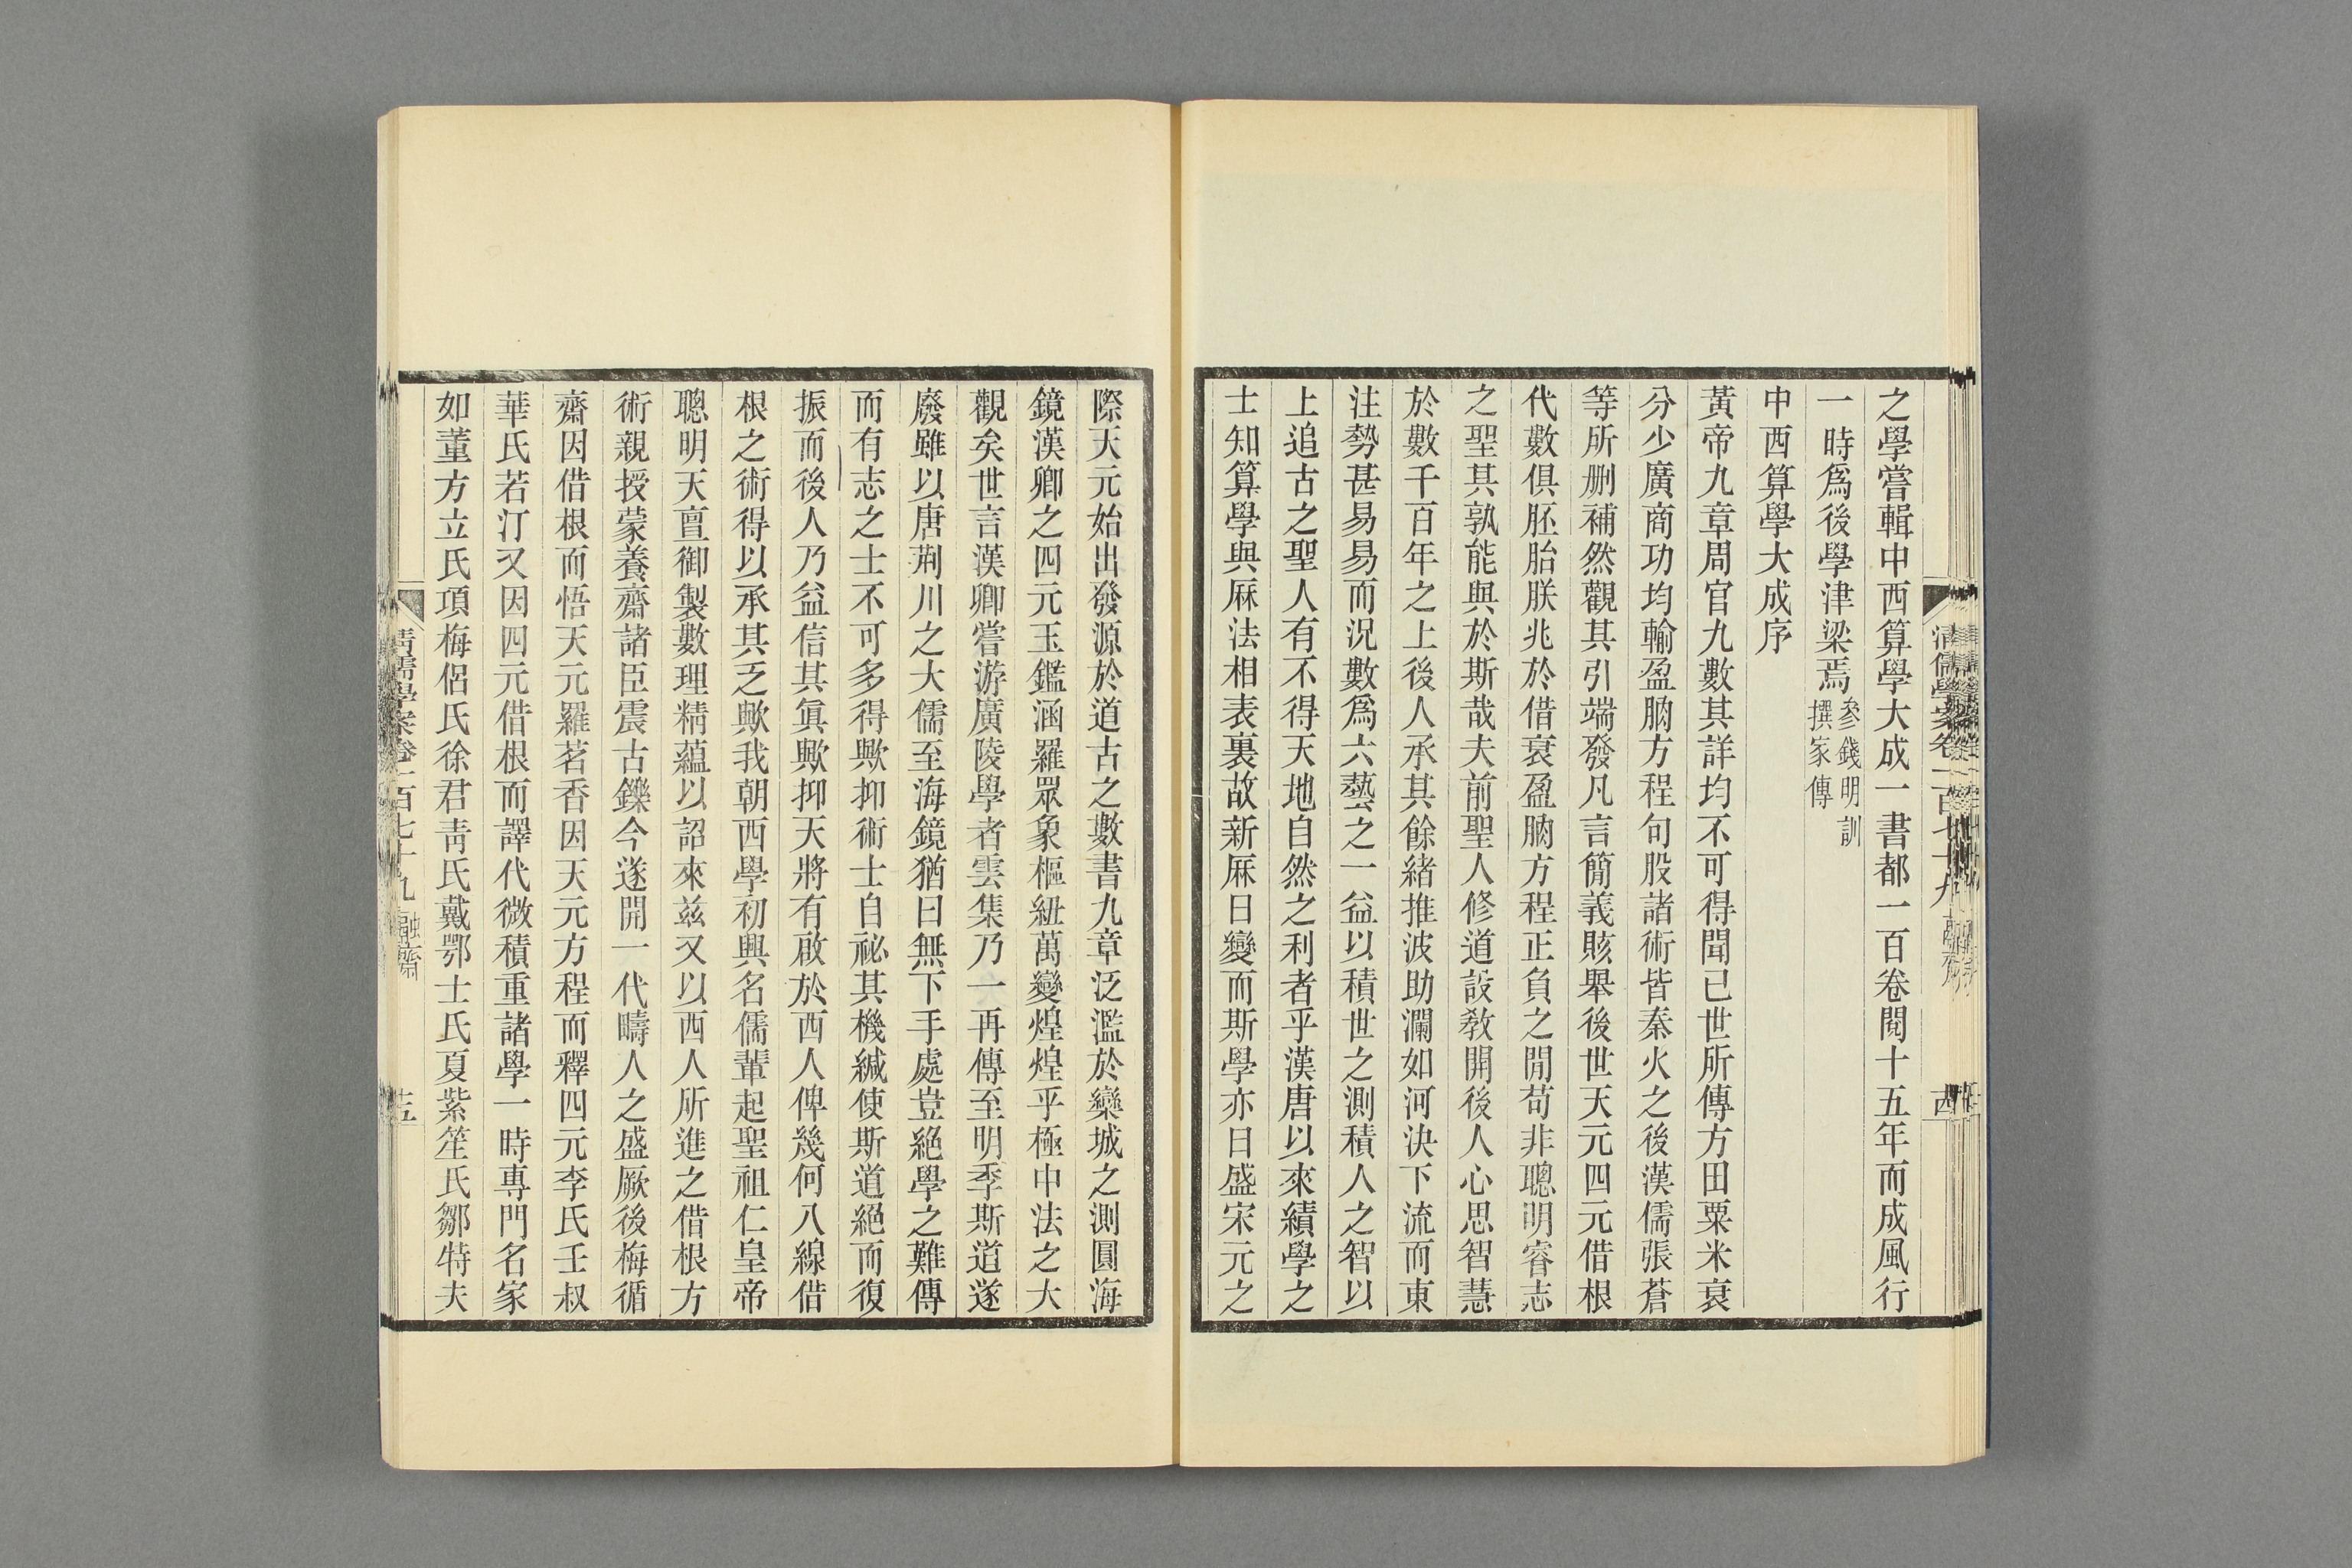 之學嘗輯中西算學大成一書都一百卷閱十五年而成風行
一時爲後學津梁焉參錢明訓撰家傳
中西算學大成序
黃帝九章周官九數其詳均不可得聞已世所傳方田粟米衰
分少廣商功均輸盈朒方程句股諸術皆秦火之後漢儒張蒼
等所删補然觀其引端發凡言簡義賅舉後世天元四元借根
代數俱胚胎朕兆於借衰盈朒方程正負之閒苟非聰明睿志
之聖其孰能與於斯哉夫前聖人修道設敎開後人心思智慧
於數千百年之上後人承其餘緒推波助瀾如河決下流而東
注勢甚易易而況數爲六藝之一益以積世之測積人之智以
上追古之聖人有不得天地自然之利者乎漢唐以來績學之
士知算學與厤法相表裏故新厤日變而斯學亦日盛宋元之
清儒學案卷一百七十九 融齋
古
際天元始出發源於道古之數書九章泛濫於欒城之測圓海
鏡漢卿之四元玉鑑涵羅眾象樞紐萬變煌煌乎極中法之大
觀矣世言漢卿嘗游廣陵學者雲集乃一再傳至明季斯道遂
廢雖以唐荆川之大儒至海鏡猶曰無下手處豈絕學之難傳
而有志之士不可多得歟抑術士自祕其機緘使斯道絕而復
振而後人乃益信其眞歟抑天將有啟於西人俾幾何八線借
根之術得以承其乏歟我朝西學初興名儒輩起聖祖仁皇帝
聰明天亶御製數理精蘊以詔來茲又以西人所進之借根方
術親授蒙養齋諸臣震古鑠今遂開一代疇人之盛厥後梅循
齋因借根而悟天元羅茗香因天元方程而釋四元李氏壬叔
華氏若汀又因四元借根而譯代微積重諸學一時專門名家
如董方立氏項梅侶氏徐君靑氏戴鄂士氏夏紫笙氏鄒特夫
清儒學案卷一百七十九 融齋
十五